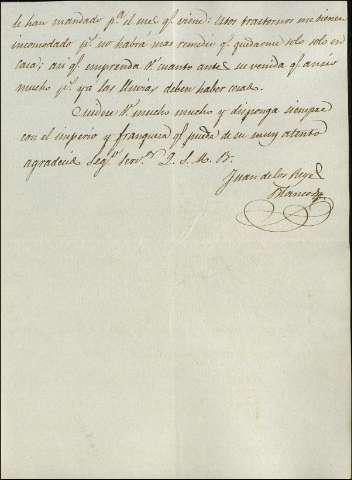 le han mandado p.ª el mes q.e viene: estos trastornos me tienen
incomodado p.s no habrá mas remedio q.e quedarme solo solo en
casa; asi q.e emprenda V. cuanto antes su venida q.e ansio
mucho p.s ya las lluvias deben haber cesado.
Cuidese V. mucho mucho y disponga siempre
con el imperio y franqueza q.e puede de su muy atento
agradecido Seg.o Serv.or Q. S. M. B.
Juan de los Reyes
Blanco